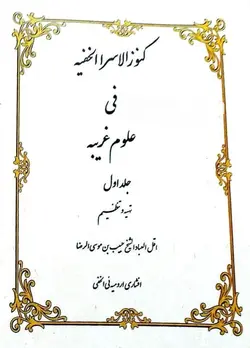 کنوز الاسرار الخفیه
فی
علوم غریبه
جلد اول
تهیه و تنظیم
اقل العباد الشیخ حبیب بن موسی الرضا
افشاری ارومیه ئی النجفی